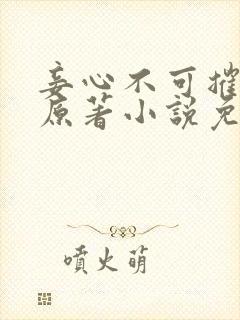 妾心不可摧
原著小說免
噴火萌